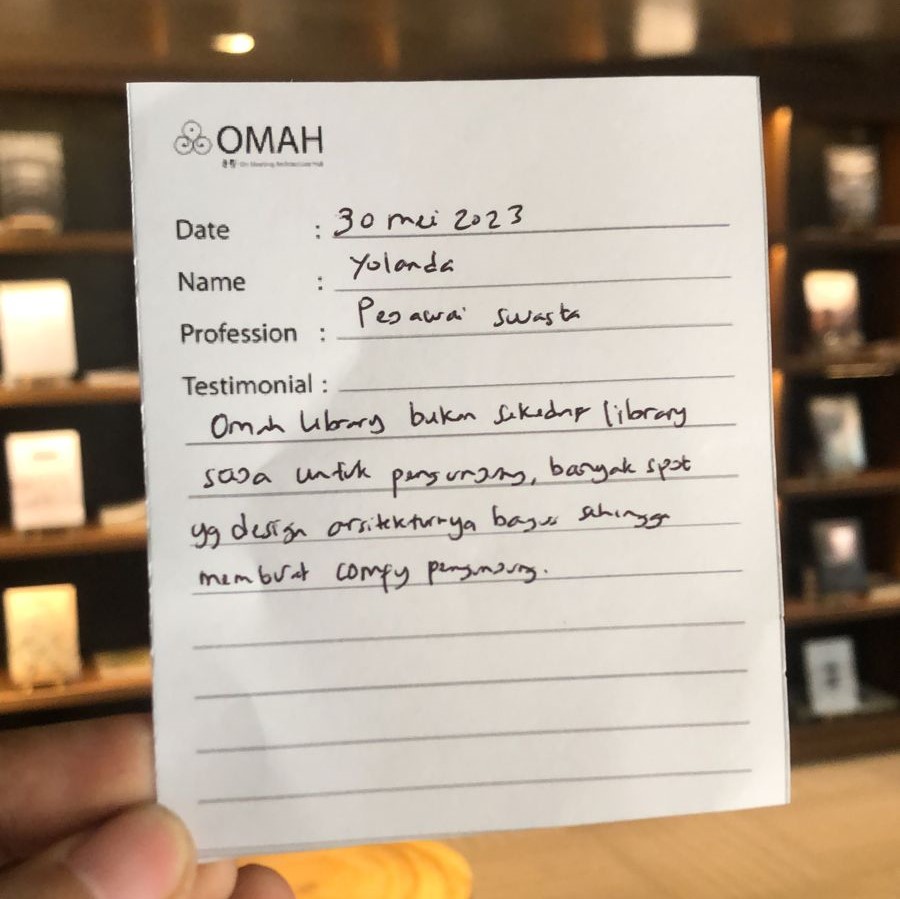 OMAH
On Meaning Architecture Hub
Date : 30 mei 2023
Name : Yolanda
Profession : Pegawai Swasta
Testimonial :
Omah Library bukan sekedar library
saja untuk pengunjung, banyak spot
yg design arsitekturnya bagus sehingga
membuat comfy pengunjung.